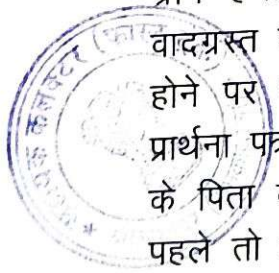 वादग्रस्त
होने पर
प्रार्थना पत्र
के पिता
पहले तो
सहायक कलक्टर (फास्ट